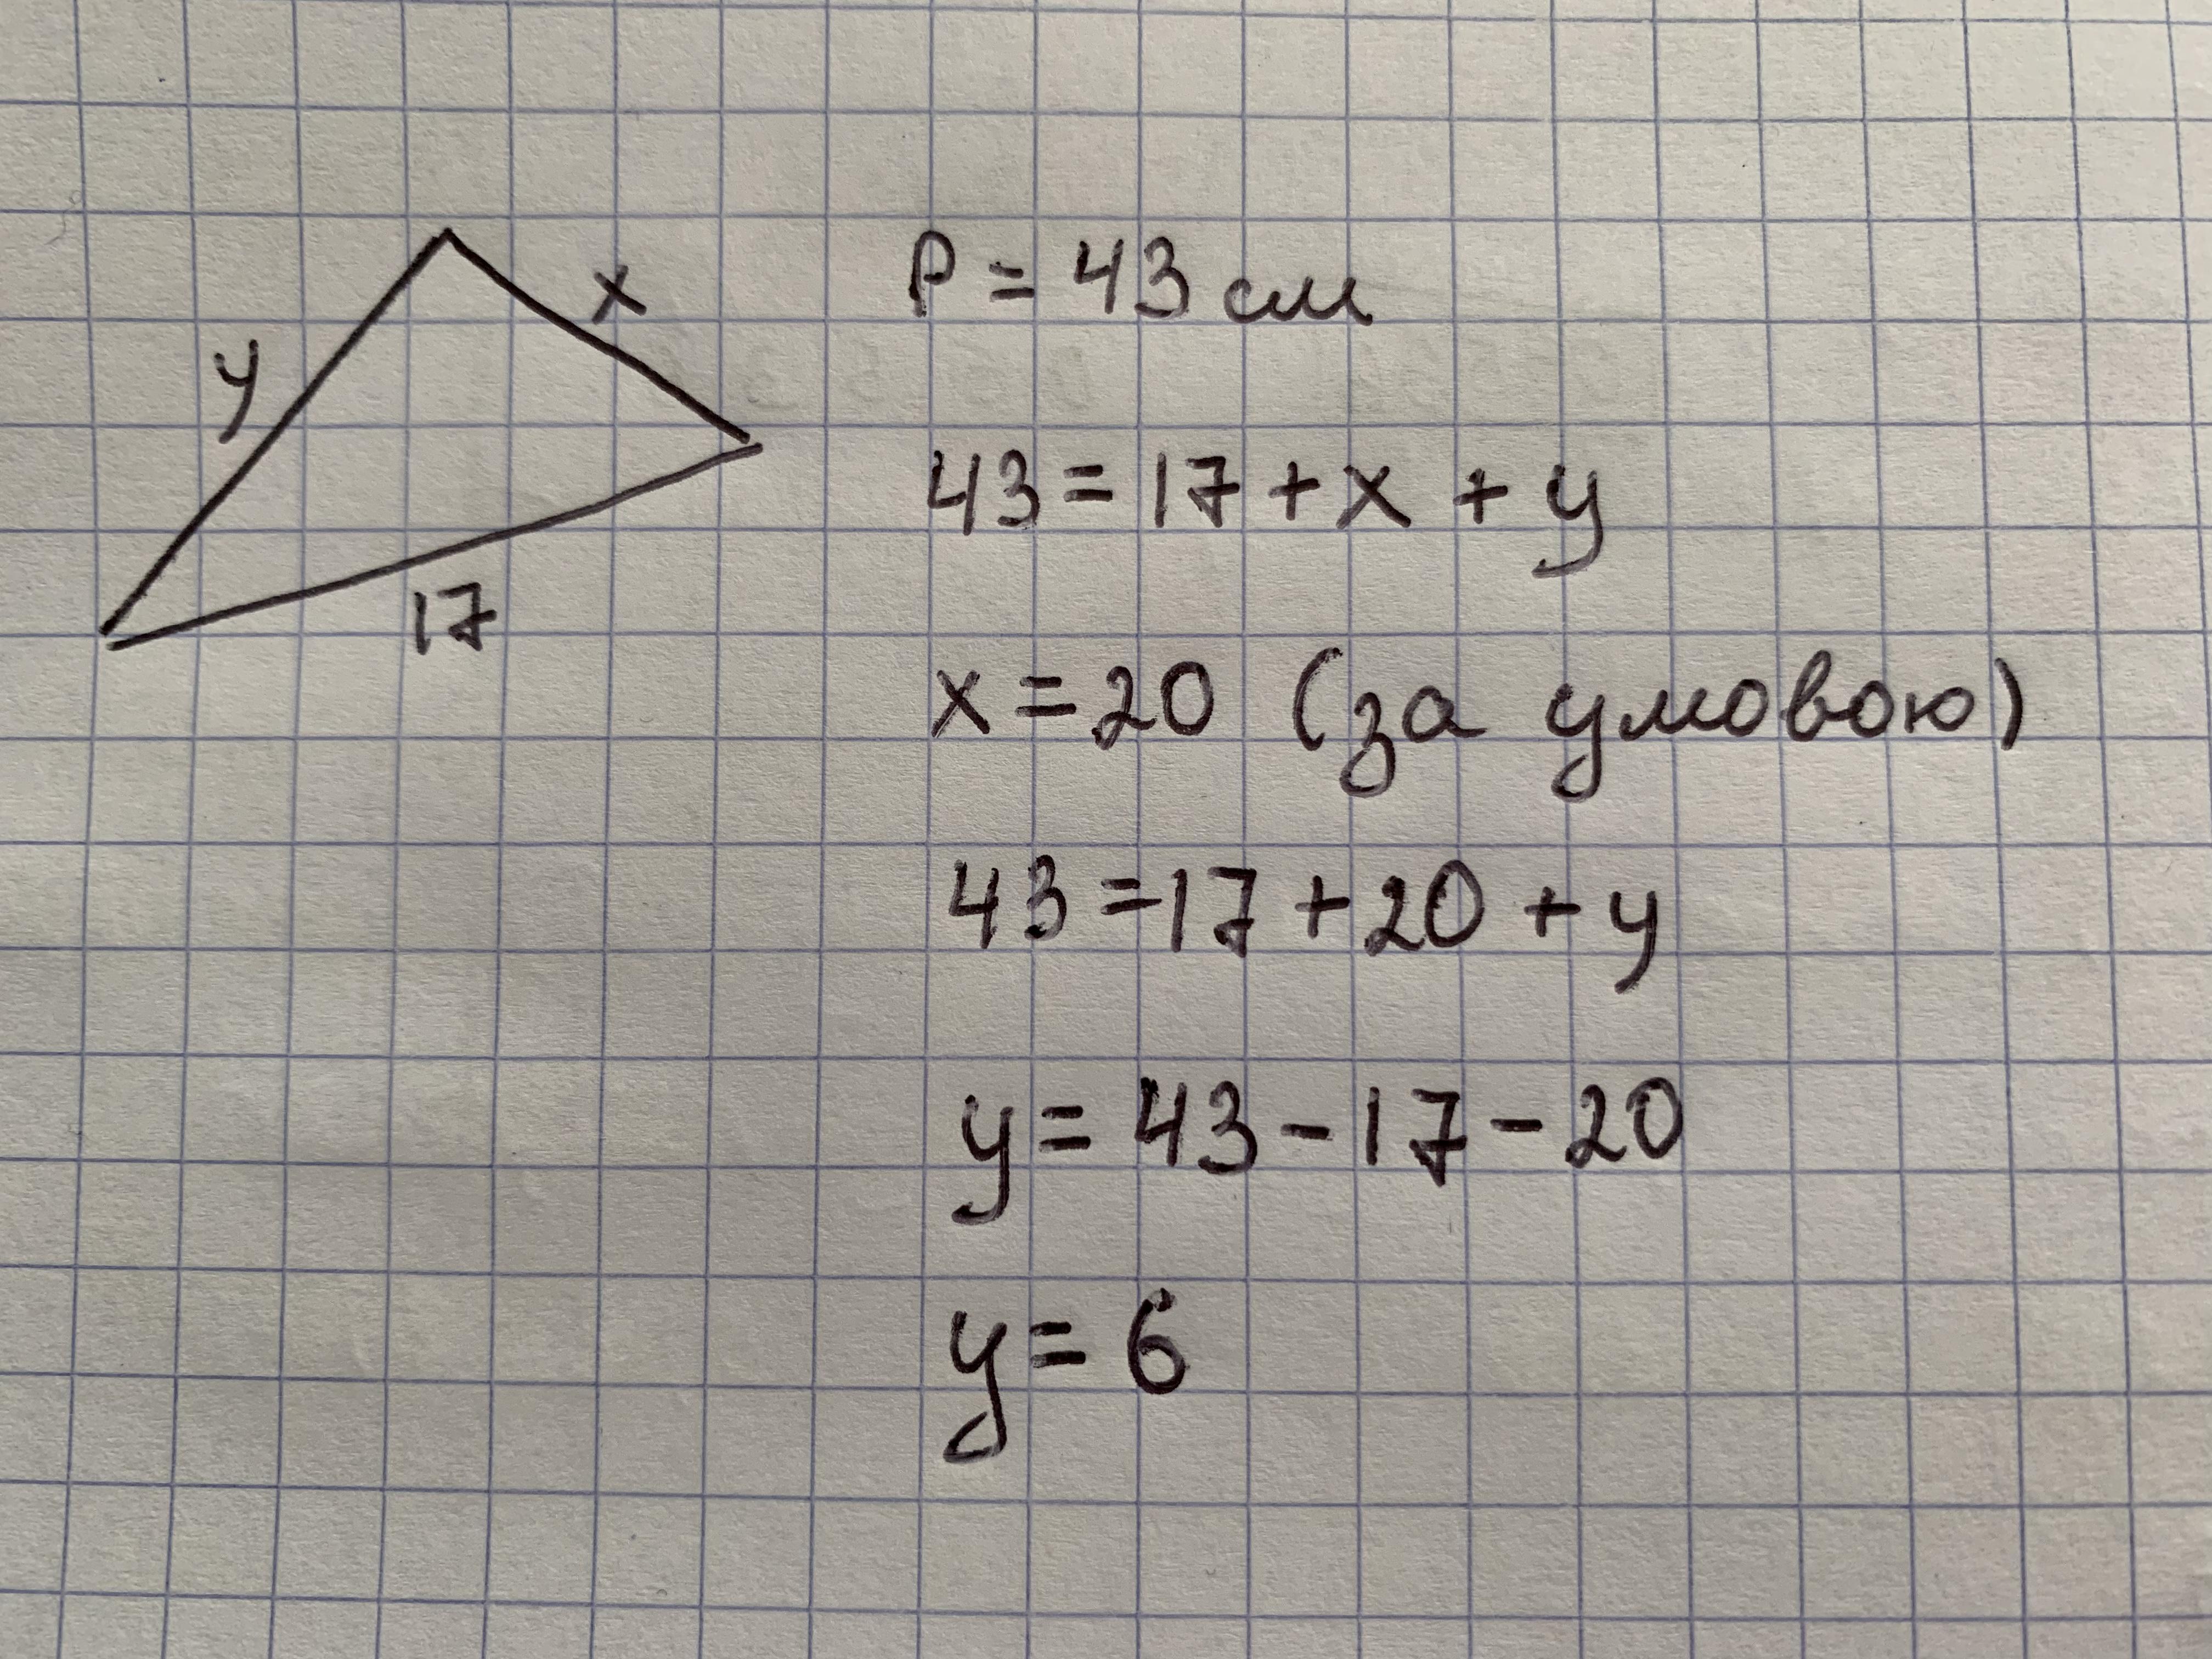 x
y
17
P = 43 см
43 = 17 + x + y
x = 20 (за умовою)
43 = 17 + 20 + y
y = 43 - 17 - 20
y = 6